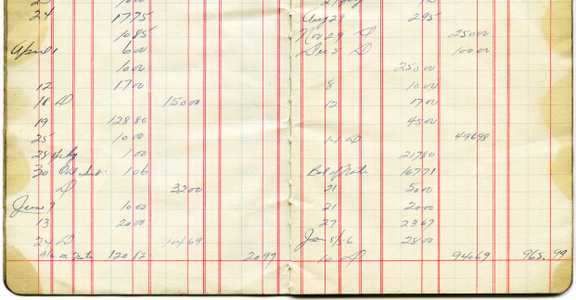 24 1775
1085
April 1 600
1000
12 1700
18 D 15000
19 128 80
25 1000
28 1 00
30 106
D 3200
June 7 1000
13 2000
24 D 10469
120 12 2097
Aug 29 295
Nov 29 D 25000
Dec 5 D 10000
25000
8 1000
12 1700
4500
D 49698
21780
Bal of 16771
21 500
21 2000
27 2367
Jan 5/56 2800
10 D 94669 965.99